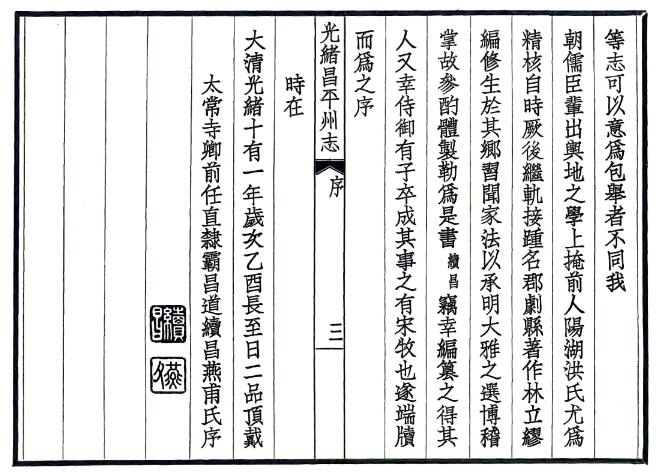 等志可以意爲包舉者不同我
朝儒臣輩出輿地之學上掩前人陽湖洪氏尤爲
精核自時厥後繼軌接踵名郡劇縣著作林立繆
編修生於其鄉習聞家法以承明大雅之選博稽
掌故參酌體製勒爲是書續昌竊幸編纂之得其
人又幸侍御有子卒成其事之有宋牧也遂端牘
而爲之序
光緒昌平州志
序
三
時在
大清光緒十有一年歲次乙酉長至日二品頂戴
太常寺卿前任直隸霸昌道續昌燕甫氏序
續昌
燕